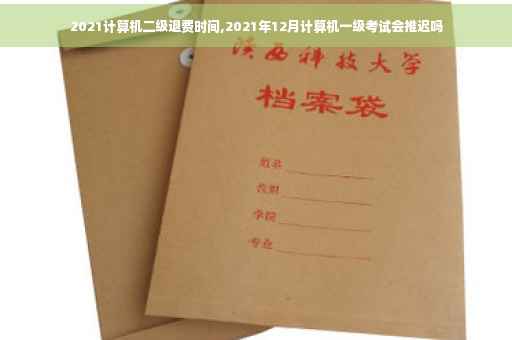 2021计算机二级退费时间,2021年12月计算机一级考试会推迟吗
陕西科技大学
档案袋
姓名
学院
专业